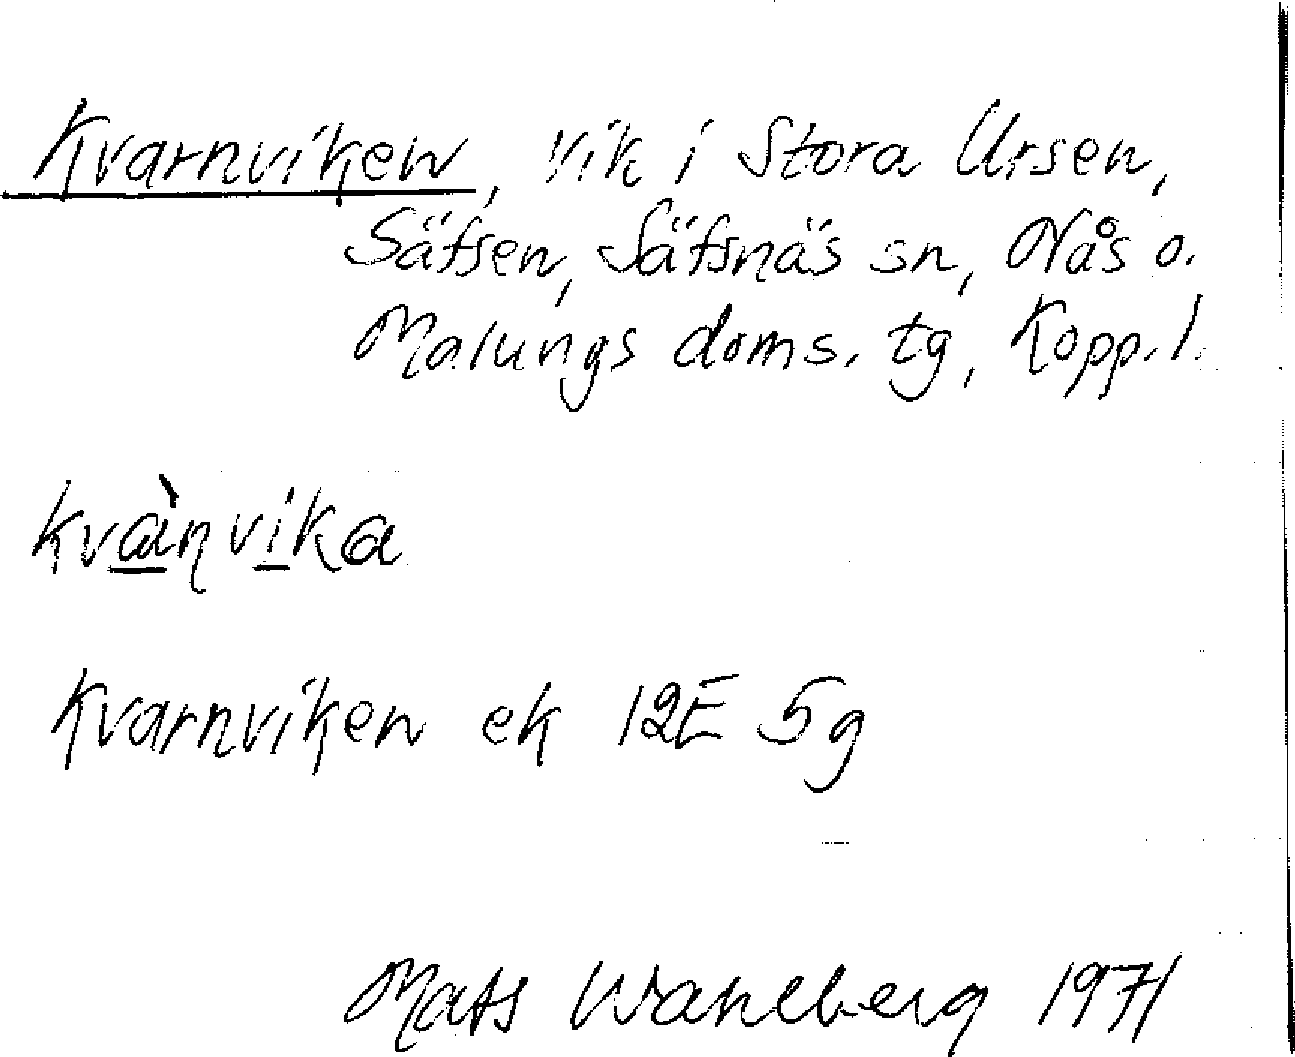 Kvarnviken, vik i Stora Ursen,
Säfsen, Säfsnäs sn, Nås o.
Malungs doms. tg, Kopp. l.
kvàɳvika
Kvarnviken ek 12E 5g
Mats Wahlberg 1971